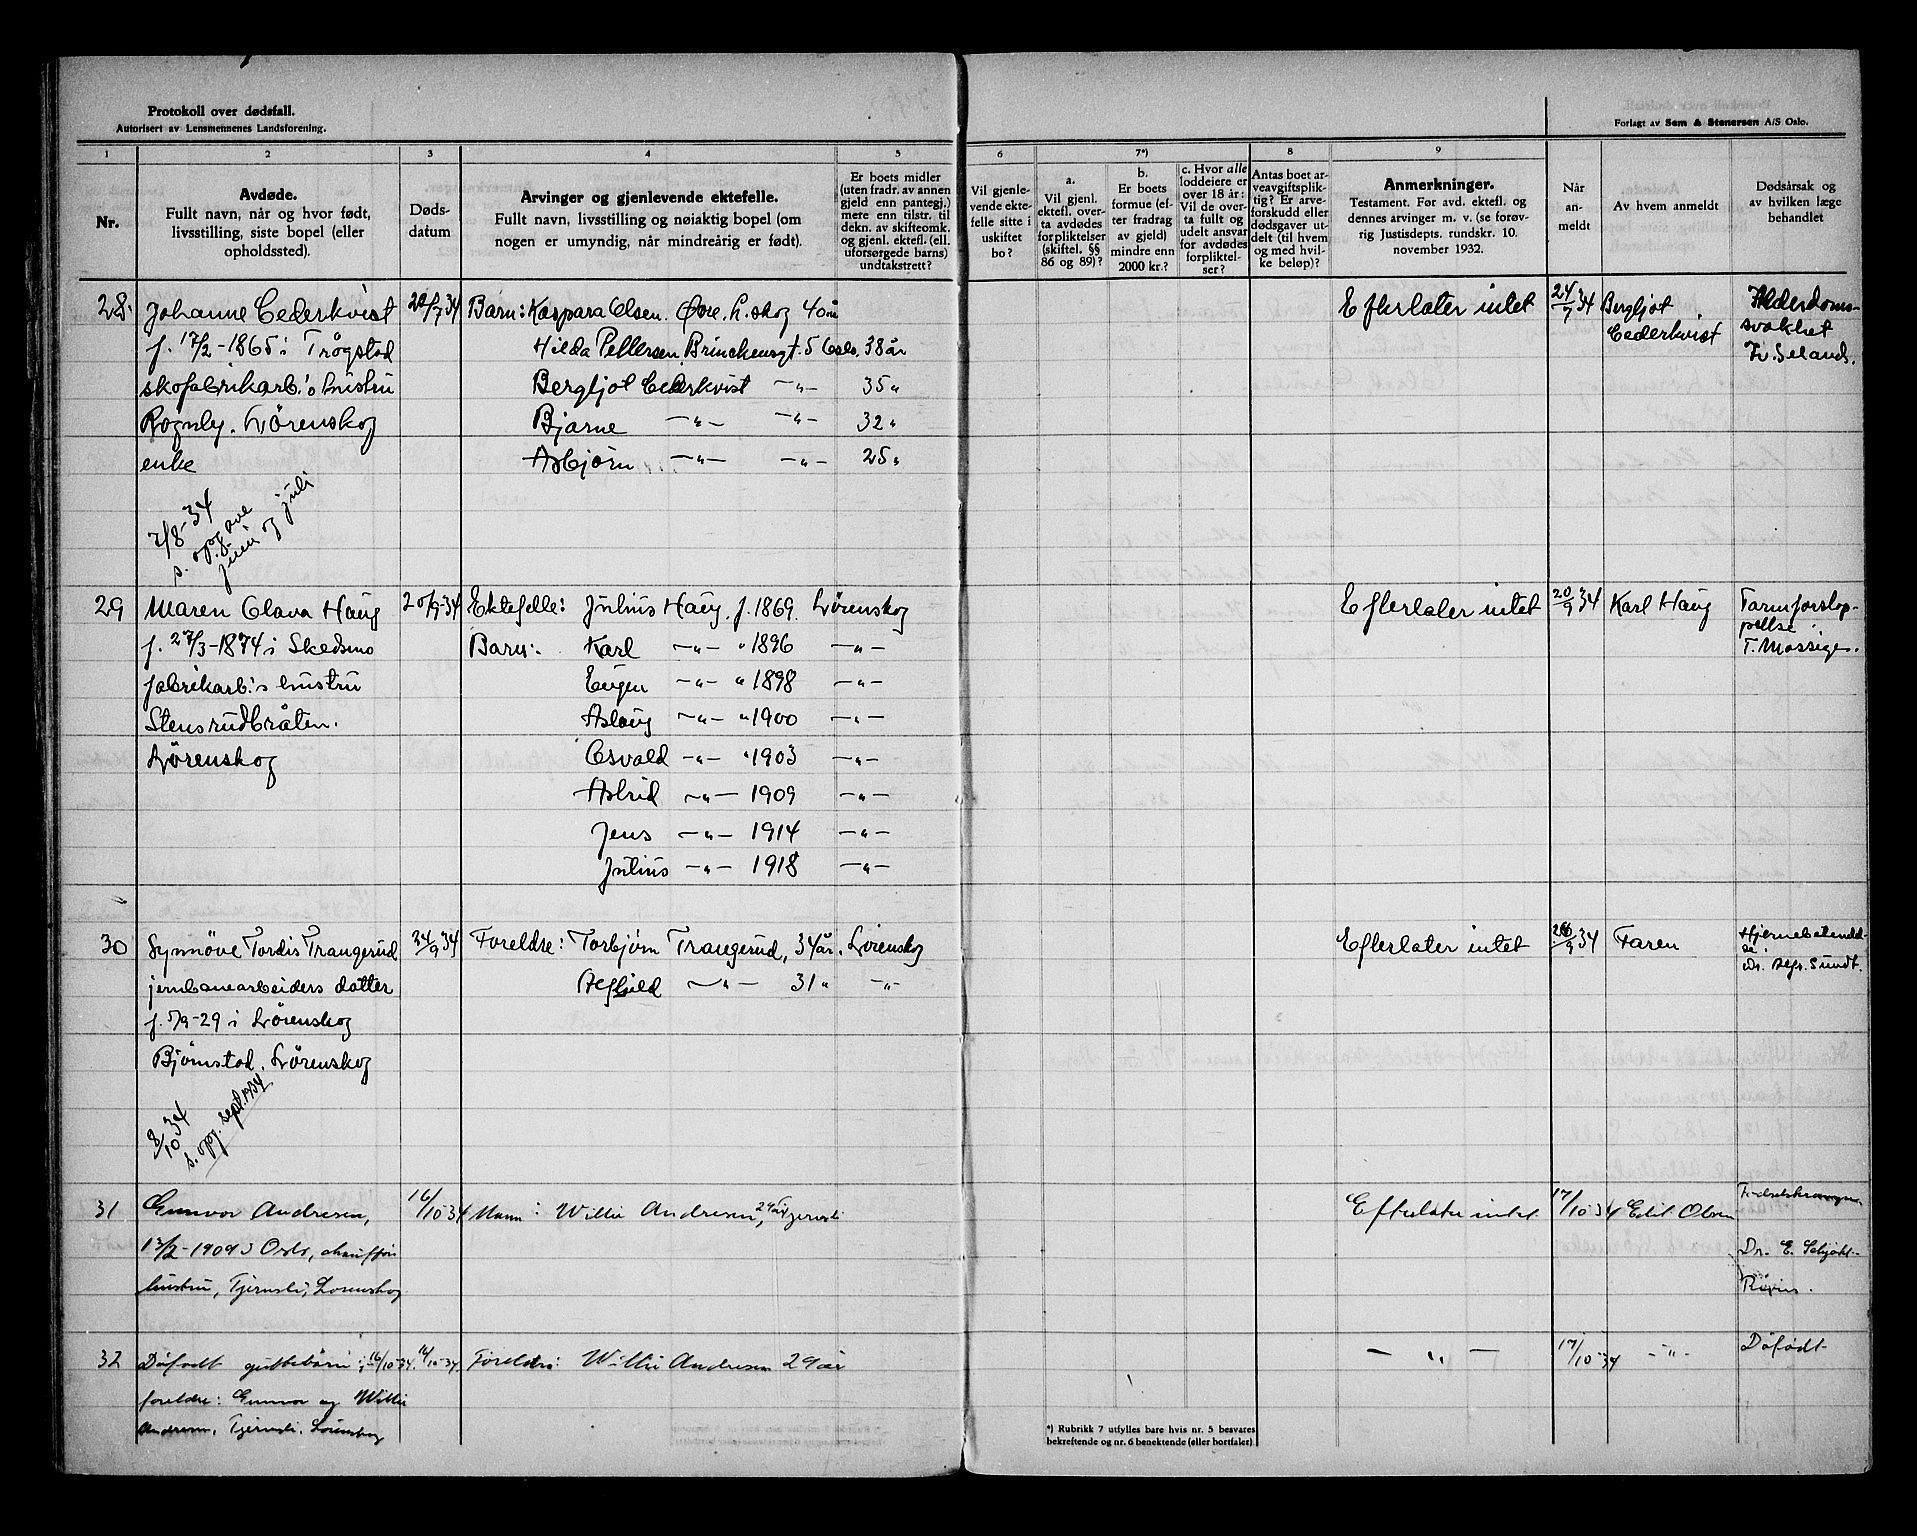 Protokoll over dødsfall.
Autorisert av Lensmennenes Landsforening.
Forlagt av Sem & Stenersen A/S Oslo.
1 2 3 4 5 6 7*) 8 9
Nr.
Avdøde.
Fullt navn, når og hvor født,
livsstilling, siste bopel (eller
opholdssted).
Døds-
datum
Arvinger og gjenlevende ektefelle.
Fullt navn, livsstilling og nøiaktig bopel (om
nogen er umyndig, når mindreårig er født).
Er boets midler
(uten fradr. av annen
gjeld enn pantegj.)
mere enn tilstr. til
dekn. av skifteomk.
og gjenl. ektef. (ell.
uforsørgede barns)
undtakstrett?
Vil gjenle-
vende ekte-
felle sitte i
uskiftet
bo?
a.
Vil gjenl.
ektef. over-
ta avdødes
forpliktelser
(skiftel. §§
86 og 89)?
b.
Er boets
formue (ef-
ter fradrag
av gjeld)
mindre enn
2000 kr.?
c. Hvor alle
loddeiere er
over 18 år:
Vil de over-
ta fullt og
udelt ansvar
for avdødes
forpliktel-
ser?
Antas boet ar-
veavgiftsplik-
tig? Er arve-
forskudd eller
dødsgaver ut-
delt (til hvem
og med hvil-
ke beløp)?
Anmerkninger.
Testament. Før avd. ektefl. og
dennes arvinger m. v. (se forøv-
rig Justisdepts. rundskr. 10.
november 1932.
Når
an-
meldt
Av hvem anmeldt
Dødsårsak og
av hvilken læge
behandlet
28. Johanne Cederkvist 20/7 34 Barn: Kaspara Olsen. Øvre L.skog 40 år Efterlater intet 24/7 34 Bergljot Alderdoms-
f. 17/2-1865 i Trøgstad Hilda Pettersen, Brinckensgt. 5 Oslo. 38 år Cederkvist svakhet
skofabrikarb.'s hustru Bergljot Cederkvist —"— 35 " Selands.
Rognly. Lørenskog Bjarne —"— —"— 32 "
enke Asbjørn —"— —"— 25 "
2/8-34
s. opgave
juni og juli
29 Maren Olava Haug 20/9-34 Ektefelle: Julius Haug, f. 1869. Lørenskog Efterlater intet 20/9 34 Karl Haug Tarmforstop-
f. 27/3-1874 i Skedsmo Barn: Karl —"— " 1896 —"— pelse
fabrikarb.'s hustru Eugen —"— " 1898 —"— T. Mossige.
Stensrudbråten. Aslaug —"— " 1900 —"—
Lørenskog Osvald —"— " 1903 —"—
Astrid —"— 1909 —"—
Jens —"— 1914 —"—
Julius —"— 1918 —"—
30 Synnöve Tordis Trangerud 24/9 34 Foreldre: Torbjørn Trangerud, 34 år. Lørenskog Efterlater intet 26/9 34 Faren Hjernebetendel-
jernbanearbeiders datter 31 " —"— se.
f. 5/9-29 i Lørenskog Dr. Alfr. Sundt.
Bjørnstad. Lørenskog
8/10 34
s. opg. sept. 1934
31 Gunvor Andresen, 16/10-34 Mann: Willie Andresen, 29 år, Tjernsli Efterlater intet. 17/10-34 Edit Olsen
13/2-1909 i Oslo, chauffør Dr. E. Schjøtt-
hustru, Tjernsli, Lørenskog Riveis.
32 Døfødt guttebarn 16/10-34. 16/10-34. Foreldre: Willie Andresen 29 år — " — 17/10-34 —"— Døfødt
foreldre: Gunvor og Willie
Andresen, Tjernsli, Lørenskog
*) Rubrikk 7 utfylles bare hvis nr. 5 besvares
bekreftende og nr. 6 benektende (eller bortfaler)